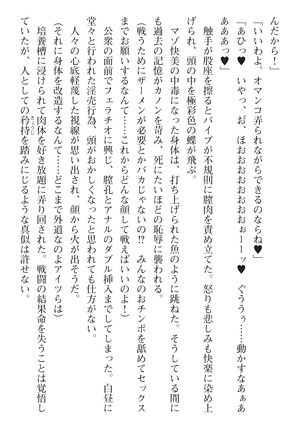 んだから！」
「いいわよ。オマンコ弄られながらできるのならね♥」
「あひっ♥　いやっ、お、ほおおおおおおぉーーッ♥　ぐううぅ……動かすなぁぁああああっ♥」
　触手が股座を擦るとバイブが不規則に膣肉を責め立てた。怒りも悲しみも快楽に染め上げられ、頭の中を極彩色の蝶が飛ぶ。
　マゾ快美の中毒になった身体は、打ち上げられた魚のように跳ねた。そうしている間にも過去の記憶がカノンを苛み、死にたいほどの恥辱に襲われる。
（戦うためにザーメンが必要とかバカじゃないの！？　みんなのおチンポを舐めてセックスまでお願いするなんて……これからどんな顔して戦えばいいのよ！）
　公衆の面前でフェラチオに興じ、膣孔とアナルのダブル挿入までしてしまった。白昼に堂々と行われた淫売行為、頭がおかしくなったと思われても仕方がない。
　人々の心底軽蔑した視線が思い出され、顔から火が出そうだ。
（それに身体を改造するなんて……どこまで外道なのよアイツらは）
　培養槽に浸けられて肉体を好き放題に弄り回された。戦闘の結果命を失うことは覚悟していたが、人としての矜持を踏みにじるような真似は許せない。